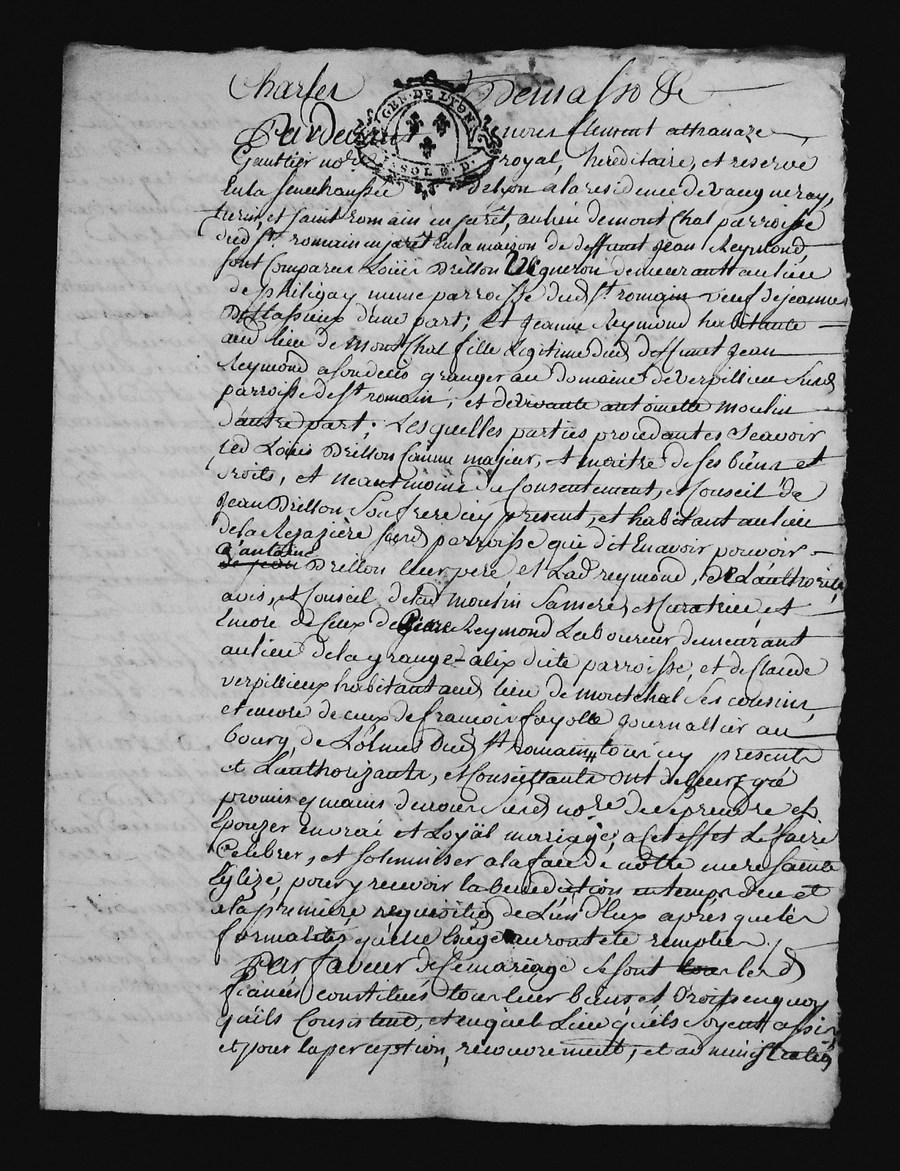 Charles Demasso &c
GEN. DE LYON
Pardevant nous Clement athanaze
Gautier no.re royal, hereditaire, et reservé
En la senechaussée de Lyon a la residence de vaugneray,
thurin, et saint Romain en jarêt, au lieu de mont Chal parroisse
dud. st. romain en jarêt En la maison de deffunt jean Reymond
sont comparus Loüis Drillon vigneron demeurant au lieu
de philigay meme parroisse dud. st. romain veuf de jeanne
Dutlassieux d'une part; et jeanne Reymond habitante
aud. lieu de Mont Chal fille Legitime dud. deffunt jean
Reymond a son deces granger au domaine de verpillieu susd.
parroisse de st. romain; et de vivante antoinette moulin
d'autre part; Lesquelles parties procedantes scavoir
led. Loüis Drillon comme majeur, et maitre de ses biens et
droits, et neantmoins du Consentement, et Conseil de
jean Drillon son frere icy present, et habitant au lieu
de la Rejasière susd. parroisse qui dit En avoir pouvoir
d'antoine
Drillon leur pere et Lad. reymond, de L'authorité,
avis, et Conseil de lad. moulin sa mere, et curatrice et
Encore de Ceux de Reymond Laboureur demeurant
au lieu de la grange-alix dite parroisse, et de Claude
verpillieux habitant aud. lieu de montchal ses cousins,
et encore de ceux de francois fayolle journallier au
bourg de L'olmes dud. st. romain tous icy presents
et L'authorizants, et Conseillants ont de leur gré
promis es mains de nousd. no.re de se prendre et
Epouzer en vrai et Loyal mariage, a Cet effet de faire
Celebrer, et solemniser a la face de nôtre mere sainte
Eglize, pour y recevoir la benediction en temps deu et
a la premiere requisition de L'un d'Eux après que les
formalités qu'elle Exige auront été remplies.
Par faveur de Ce mariage se sont lesd.
fiancés constitués tous leur biens et Droits en quoy
qu'ils Consistent, et en quel Lieu qu'ils soyent assis
et pour la perception, recouvrement, et administration